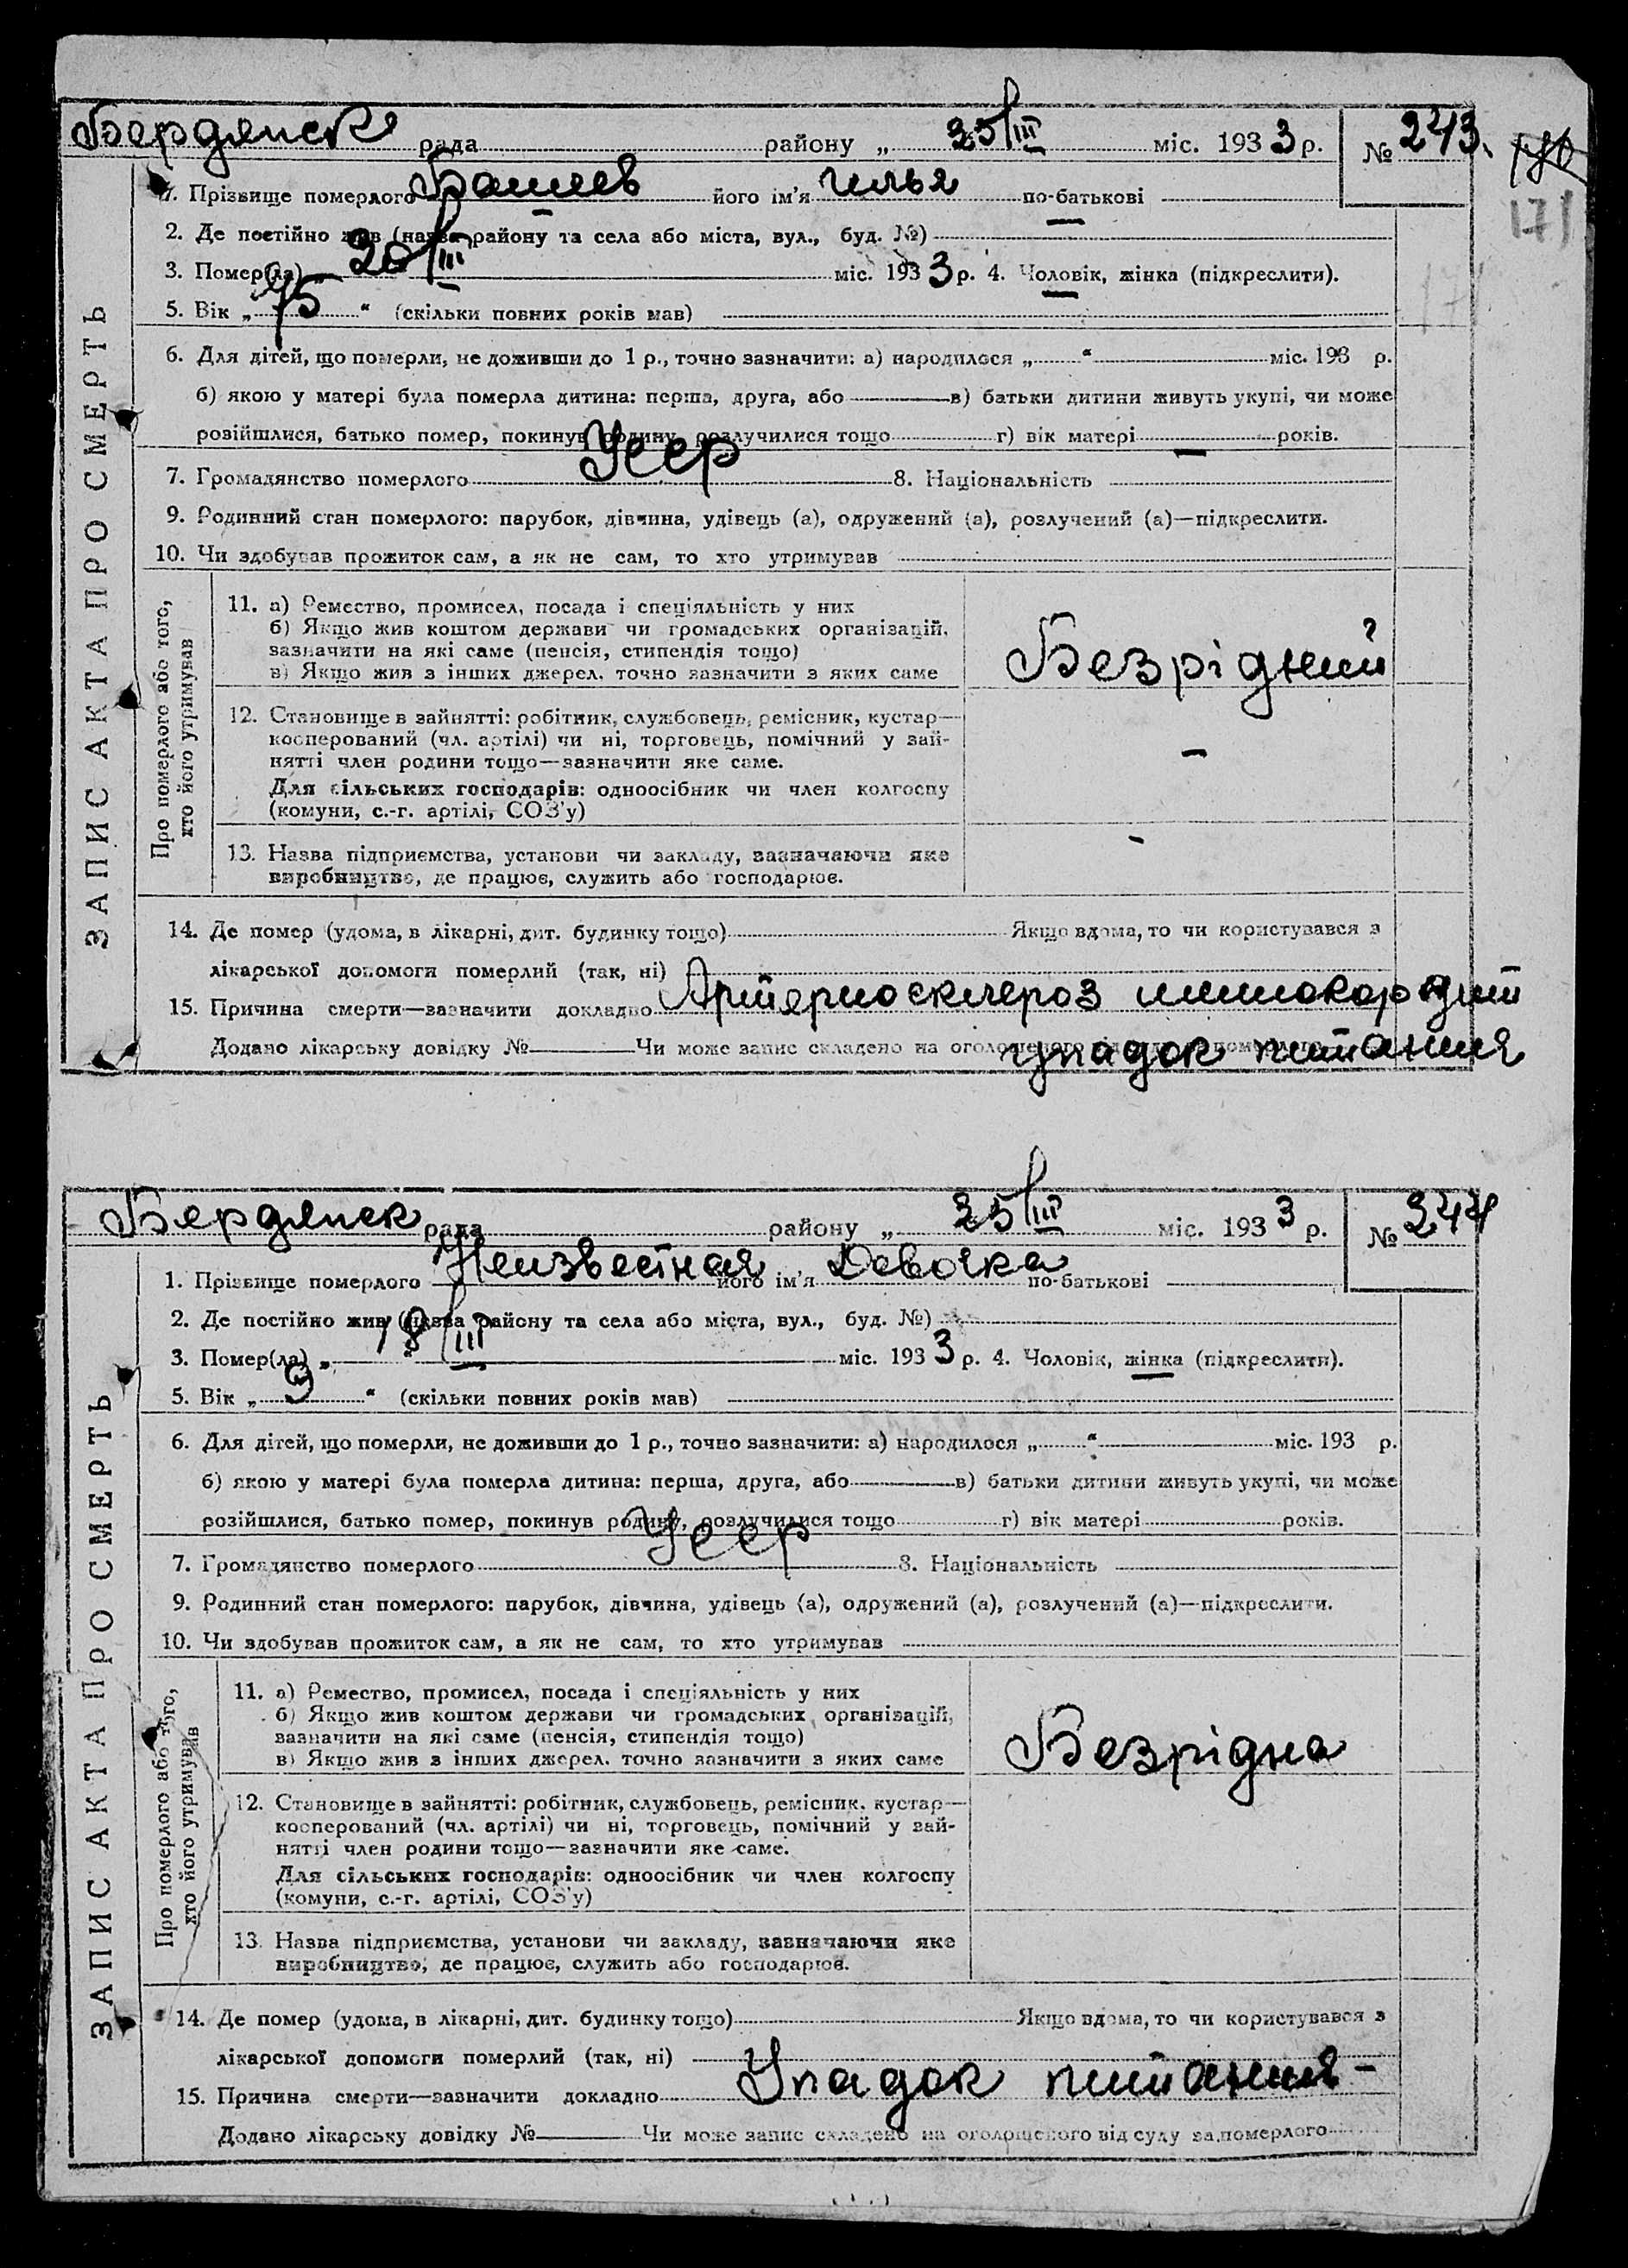 Бердянск рада району „ 25/III міс. 1933 р. № 243.
171
1. Прізвище померлого його ім'я Илья по-батькові —
2. Де постійно жив (назва району та села або міста, вул., буд. №)
3. Помер(ла) 20/III міс. 1933 р. 4. Чоловік, жінка (підкреслити).
5. Вік „ 75 “ (скільки повних років мав)
6. Для дітей, що померли, не доживши до 1 р., точно зазначити: а) народилося „ “ міс. 193 р.
б) якою у матері була померла дитина: перша, друга, або в) батьки дитини живуть укупі, чи може
розійшлися, батько помер, покинув родину, розлучилися тощо г) вік матері років.
7. Громадянство померлого Усср 8. Національність —
9. Родинний стан померлого: парубок, дівчина, удівець (а), одружений (а), розлучений (а)—підкреслити.
10. Чи здобував прожиток сам, а як не сам, то хто утримував
ЗАПИС АКТА ПРО СМЕРТЬ
Про померлого або того,
хто його утримував
11. а) Ремество, промисел, посада і спеціяльність у них
б) Якщо жив коштом держави чи громадських організацій,
зазначити на які саме (пенсія, стипендія тощо)
в) Якщо жив з інших джерел. точно зазначити з яких саме
Безрідний
12. Становище в зайнятті: робітник, службовець, ремісник, кустар—
косперований (чл. артілі) чи ні, торговець, помічний у зай-
нятті член родини тощо—зазначити яке саме. —
Для сільських господарів: одноосібник чи член колгоспу
(комуни, с.-г. артілі, СОЗ'у)
13. Назва підприємства, установи чи закладу, зазначаючи яке
виробництво, де працює, служить або господарює. -
14. Де помер (удома, в лікарні, дит. будинку тощо) Якщо вдома, то чи користувався з
лікарської допомоги померлий (так, ні)
15. Причина смерти—зазначити докладно Артериосклероз миокардит
Додано лікарську довідку № Чи може запис складено на оголошеного упадок питания
Бердянск рада району „ 25/III міс. 1933 р. № 244
1. Прізвище померлого Неизвестная його ім'я Девочка по-батькові
2. Де постійно жив (назва району та села або міста, вул., буд. №)
3. Помер(ла) „ 18/III міс. 1933 р. 4. Чоловік, жінка (підкреслити).
5. Вік „ 9 “ (скільки повних років мав)
6. Для дітей, що померли, не доживши до 1 р., точно зазначити: а) народилося „ “ міс. 193 р.
б) якою у матері була померла дитина: перша, друга, або в) батьки дитини живуть укупі, чи може
розійшлися, батько помер, покинув родину, розлучилися тощо г) вік матері років.
7. Громадянство померлого Усср 8. Національність
9. Родинний стан померлого: парубок, дівчина, удівець (а), одружений (а), розлучений (а)—підкреслити.
10. Чи здобував прожиток сам, а як не сам, то хто утримував
ЗАПИС АКТА ПРО СМЕРТЬ
Про померлого або того,
хто його утримував
11. а) Ремество, промисел, посада і спеціяльність у них
б) Якщо жив коштом держави чи громадських організацій,
зазначити на які саме (пенсія, стипендія тощо)
в) Якщо жив з інших джерел. точно зазначити з яких саме
Безрідна
12. Становище в зайнятті: робітник, службовець, ремісник. кустар—
кооперований (чл. артілі) чи ні, торговець, помічний у зай-
нятті член родини тощо—зазначити яке саме.
Для сільських господарів: одноосібник чи член колгоспу
(комуни, с.-г. артілі, СОЗ'у)
13. Назва підприємства, установи чи закладу, зазначаючи яке
виробництво, де працює, служить або господарює.
14. Де помер (удома, в лікарні, дит. будинку тощо) Якщо вдома, то чи користувався з
лікарської допомоги померлий (так, ні)
15. Причина смерти—зазначити докладно Упадок питания -
Додано лікарську довідку № Чи може запис складено на оголошеного від суду за померлого